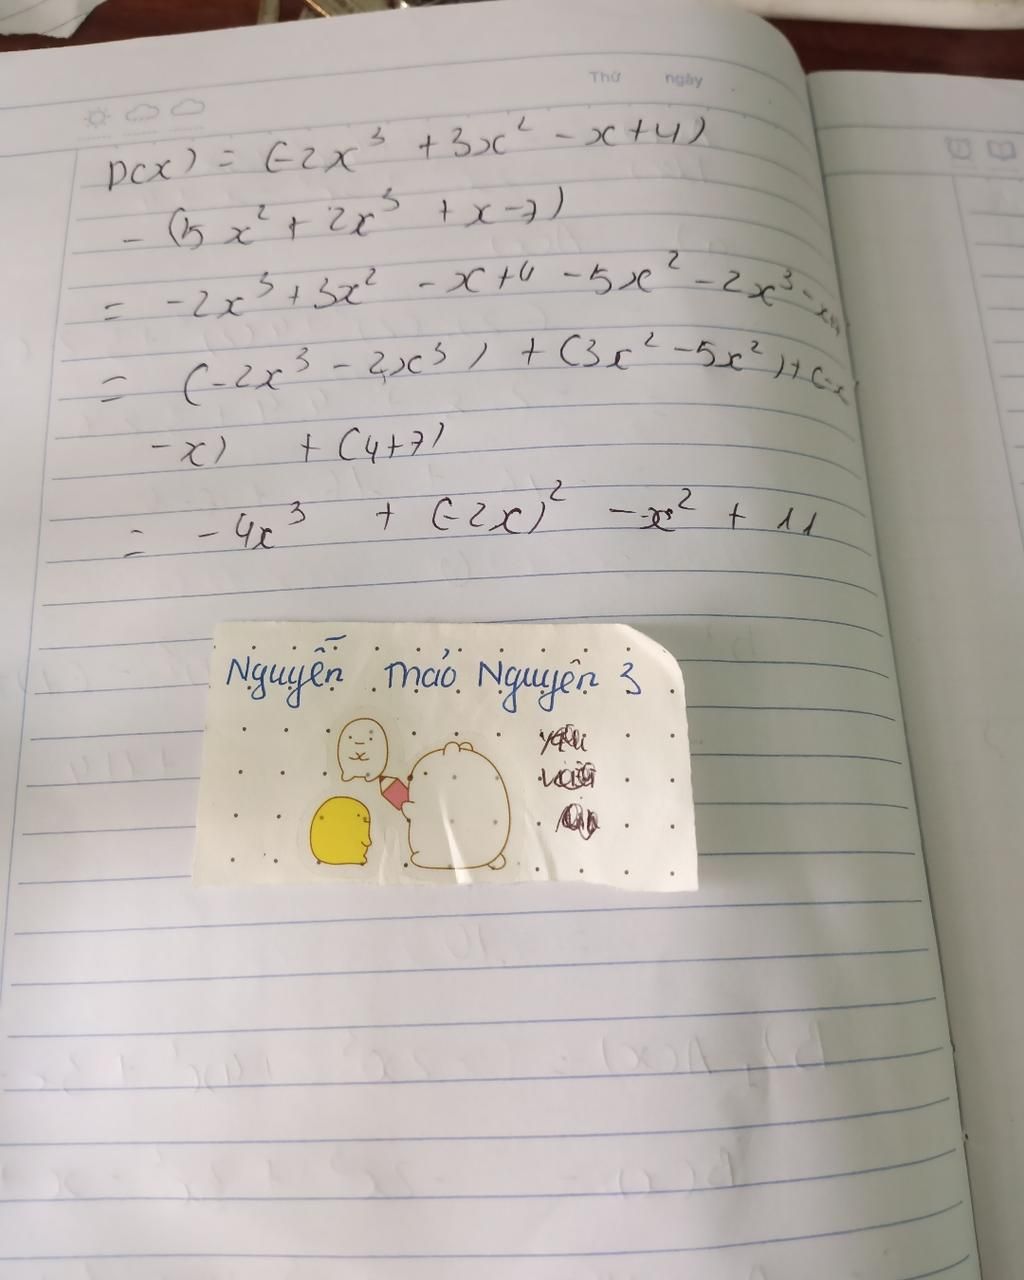 Thứ ngày
P(x) = (-2x³ + 3x² - x + 4)
- (5x² + 2x³ + x - 7)
= -2x³ + 3x² - x + 4 - 5x² - 2x³ - x
= (-2x³ - 2x³) + (3x² - 5x²) + (-x
-x) + (4+7)
= -4x³ + (-2x)² - x² + 11
Nguyễn Thảo Nguyên 3